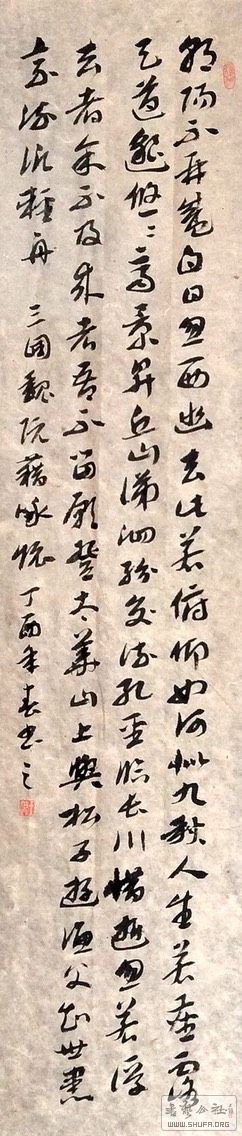 朝陽不再盛白日忽西幽去此若俯仰如何似九秋人生若塵露
天道邈悠々齊景昇丘山涕泗紛交流孔聖臨長川惜逝忽若浮
去者余不及來者吾不留願登太華山上與松子遊漁父知世患
乘流泛輕舟 三國魏阮籍詠懷 丁酉年春書之
WWW.SHUFA.ORG